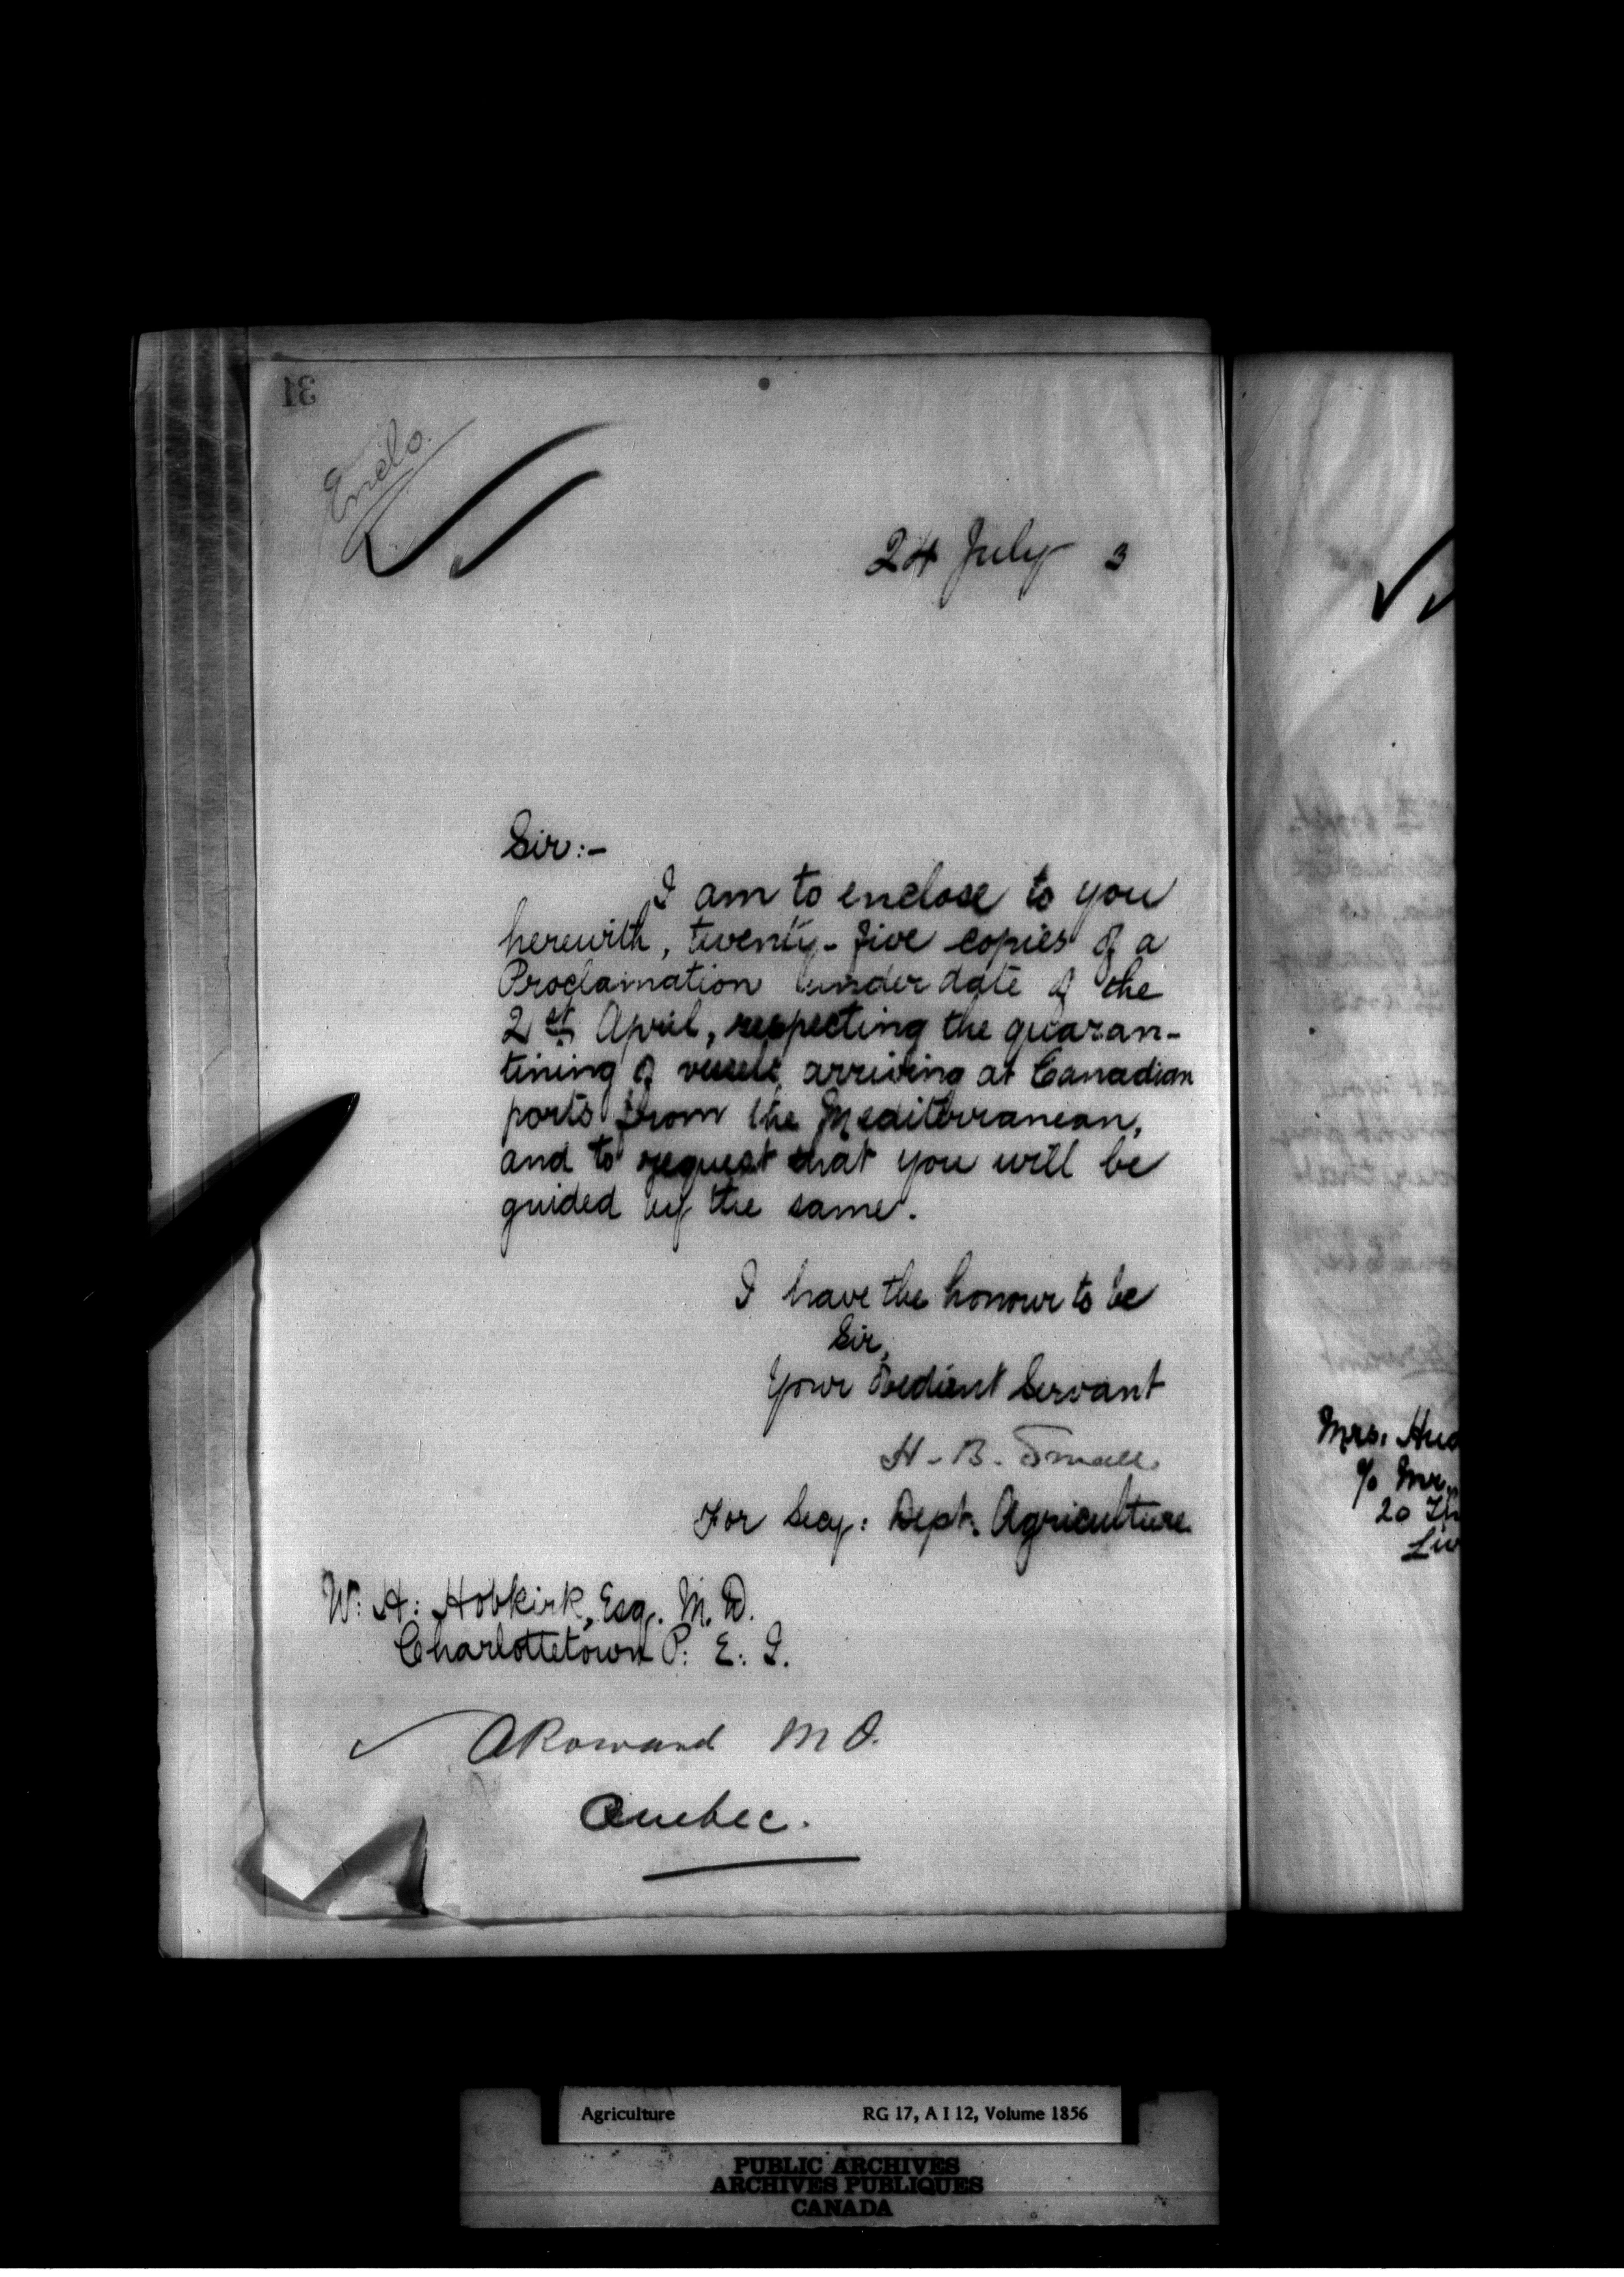 31
Enclo.
24 July 3
Sir:-
I am to enclose to you
herewith, twenty-five copies of a
Proclamation under date of the
2st April, respecting the quaran-
tining of vessels arriving at Canadian
ports from the Mediterranean,
and to request that you will be
guided by the same.
I have the honour to be
Sir,
Your Obedient Servant
H. B. Small
For Secy: Dept. Agriculture
W: H: Hobkirk, Esq. M. D.
Charlottetown P: E: I.
A Rowand M D.
Quebec.
Mrs.
c/o Mr.
20
Agriculture RG 17, A I 12, Volume 1856
PUBLIC ARCHIVES
ARCHIVES PUBLIQUES
CANADA